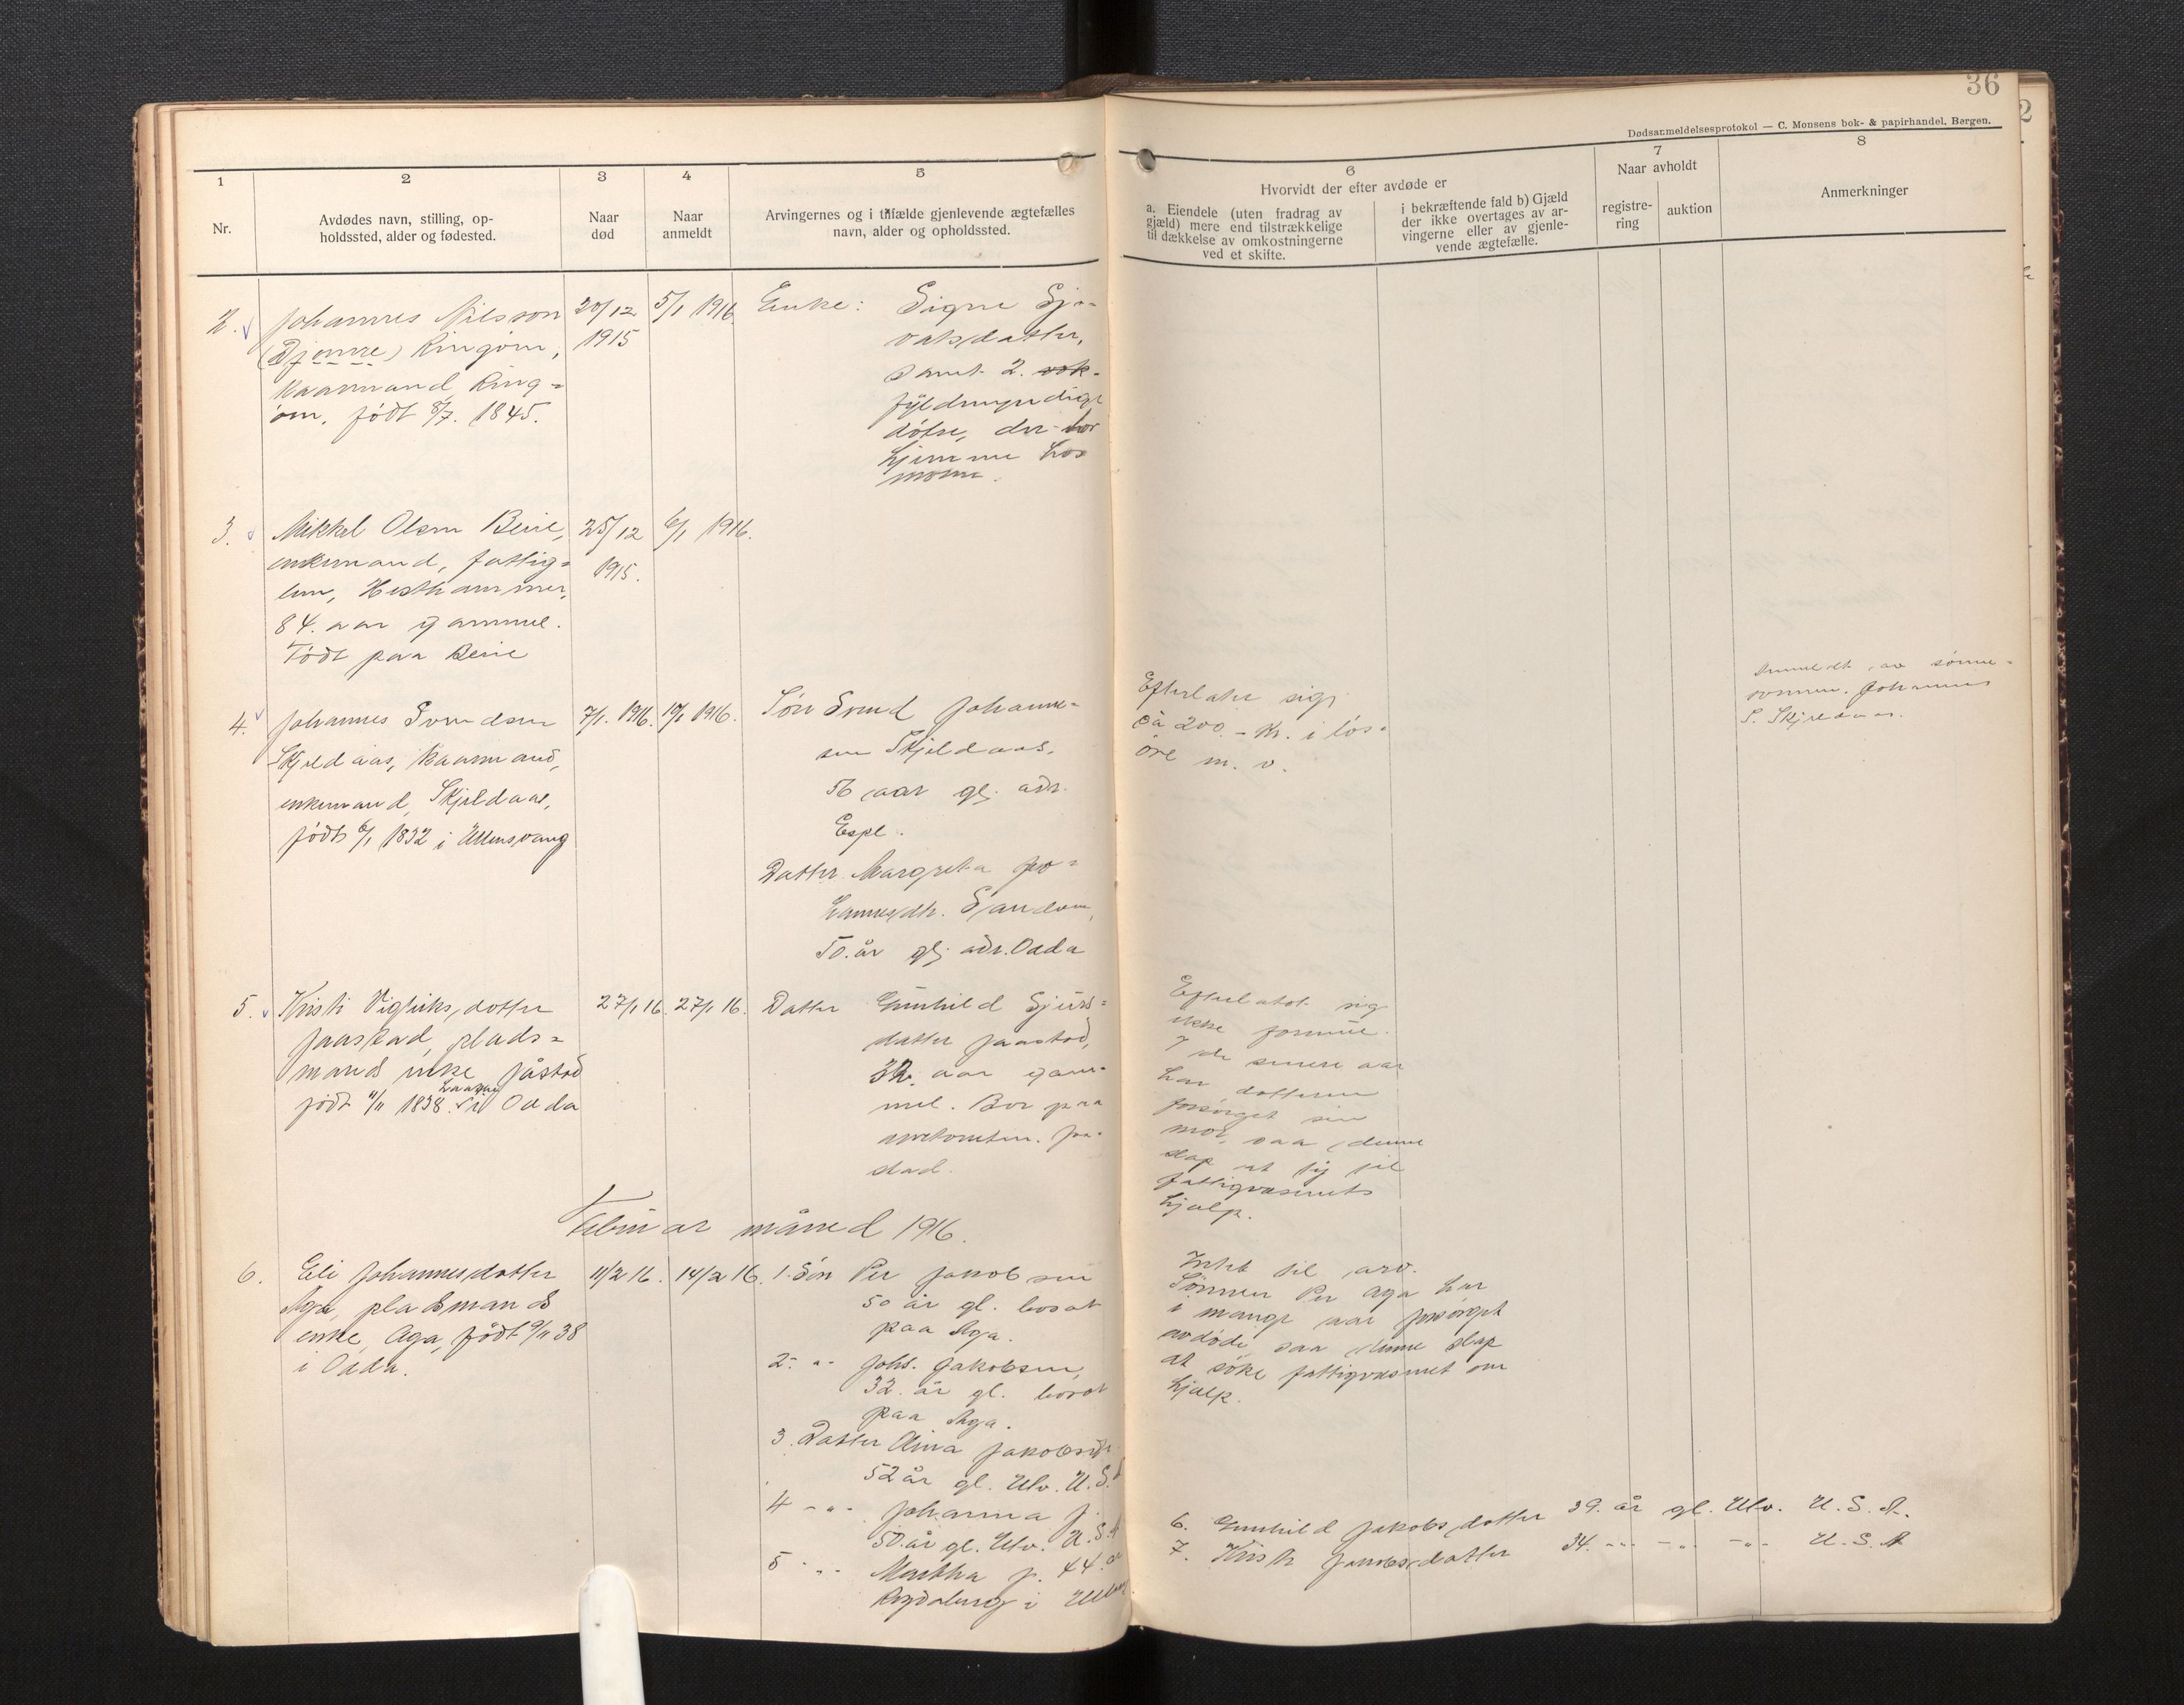 36
Dødsanmeldelsesprotokol — C. Monsens bok- & papirhandel, Bergen.
1
Nr.
2
Avdødes navn, stilling, op-
holdssted, alder og fødested.
3
Naar
død
4
Naar
anmeldt
5
Arvingernes og i tilfælde gjenlevende ægtefælles
navn, alder og opholdssted.
6
Hvorvidt der efter avdøde er
a. Eiendele (uten fradrag av
gjæld) mere end tilstrækkelige
til dækkelse av omkostningerne
ved et skifte.
i bekræftende fald b) Gjæld
der ikke overtages av ar-
vingerne eller av gjenle-
vende ægtefælle.
7
Naar avholdt
registre-
ring
auktion
8
Anmerkninger
2.
Johannes Nilsson
(Djønne) Ringøim,
kaarmand, Ring-
øim, født 8/7. 1845.
20/12
1915
5/1 1916.
Enke: Signe Sjo-
vatsdatter,
samt 2.
fuldmyndige
døtre, der bor
hjemme hos
moren.
3.
Mikkel Olsen Beie,
enkemand, fattig-
lem, Hesthammer,
84. aar gammel.
Født paa Beie
25/12
1915.
6/1 1916.
4.
Johannes Svendsen
Skjeldaas, kaarmand,
enkemand, Skjeldaas,
født 6/1 1832 i Ullensvang
7/1. 1916.
10/1 1916.
Søn Svend Johanne-
sen Skjeldaas,
56 aar gl. adr.
Espe.
Datter Margreta Jo-
hannesdtr. Sandven,
50. år gl. adr. Odda
Efterlater sig
ca 200.- kr. i løs-
øre m. v.
Anmeldt av sønne-
sønnen, Johannes
S. Skjeldaas.
5.
Kristi Vigleiksdotter
Jaastad, plads-
mands enke, Jåstad
født 11/11 1838. i Odda
27/1 16.
27/1 16.
Datter Gunhild Sjurs-
datter Jaastad,
32. aar gam-
mel. Bor paa
Jaa-
stad.
Efterlatet sig
ikke formue.
I de senere aar
har dotteren
forsørget sin
mor, saa denne
slap at ty til
fattigvæsenets
hjælp.
Februar måned 1916.
6.
Eli Johannesdotter
Aga, pladsmands
enke, Aga, født 9/11 38
i Odda.
11/2 16.
14/2 16.
1. Søn Per Jakobsen
50 år gl. bosat
paa Aga.
2. -"- Johs. Jakobsen,
32. år gl. bosat
paa Aga.
3. Datter Jakobsdtr
52 år gl. Utv. U.S.A
4 -"- Johanna J.
50. år gl. Utv. U.S.A
5 -"- Martha J. 44. år
i
Intet til arv.
Sønnen Per Aga har
i mange aar forsørget
avdøde, saa denne slap
at søke fattigvæsenet om
hjælp.
6. Gunhild Jakobsdotter 39. år gl. Utv. U. S. A.
7. Kristi Jakobsdatter 34. -"- -"- -"- U. S. A